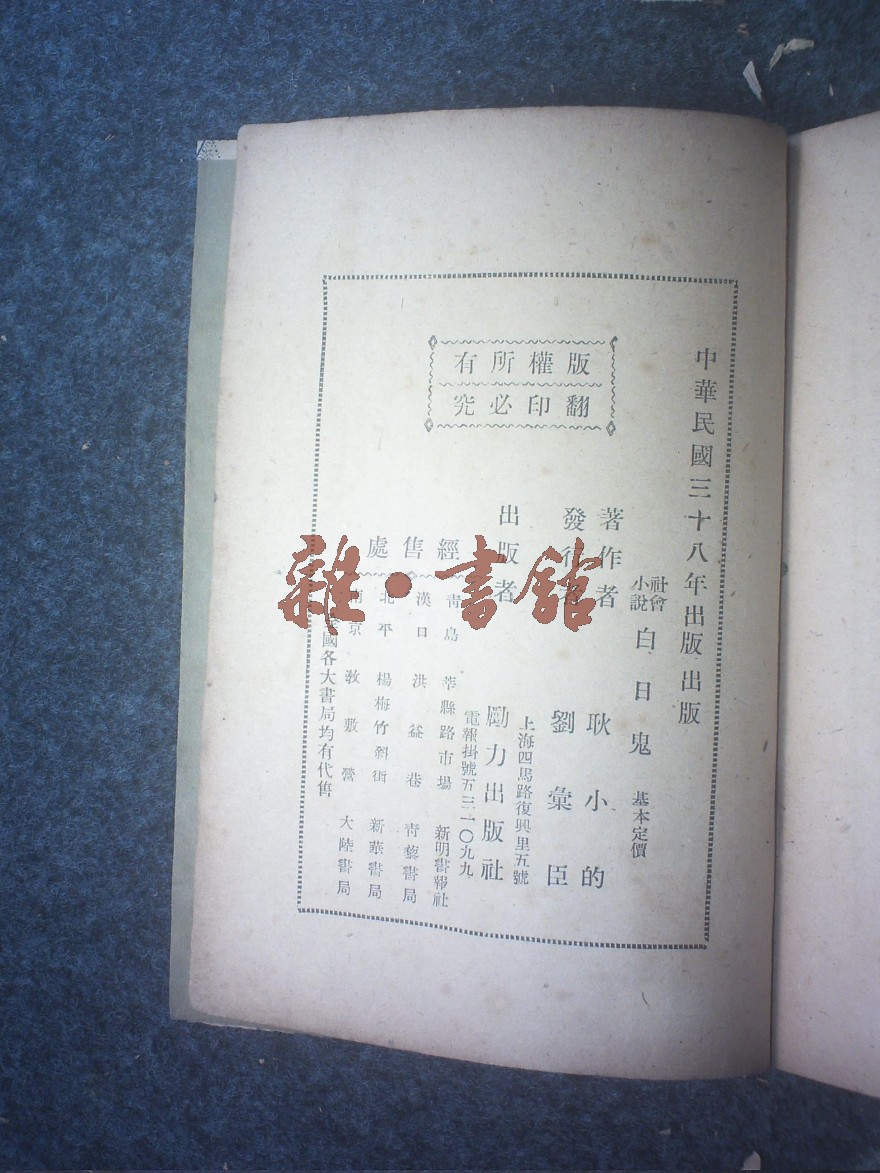 中華民國三十八年出版 出版
社會小說 白日鬼 基本定價
著作者 耿小的
發行者 劉彙臣
上海四馬路復興里五號
出版者 勵力出版社
電報掛號五三一〇九九
版權所有
翻印必究
經售處
青島 莘縣路市場 新明書報社
漢口 洪益巷 青藝書局
北平 楊梅竹斜街 新華書局
南京 教敷營 大陸書局
國各大書局均有代售
雜·書館